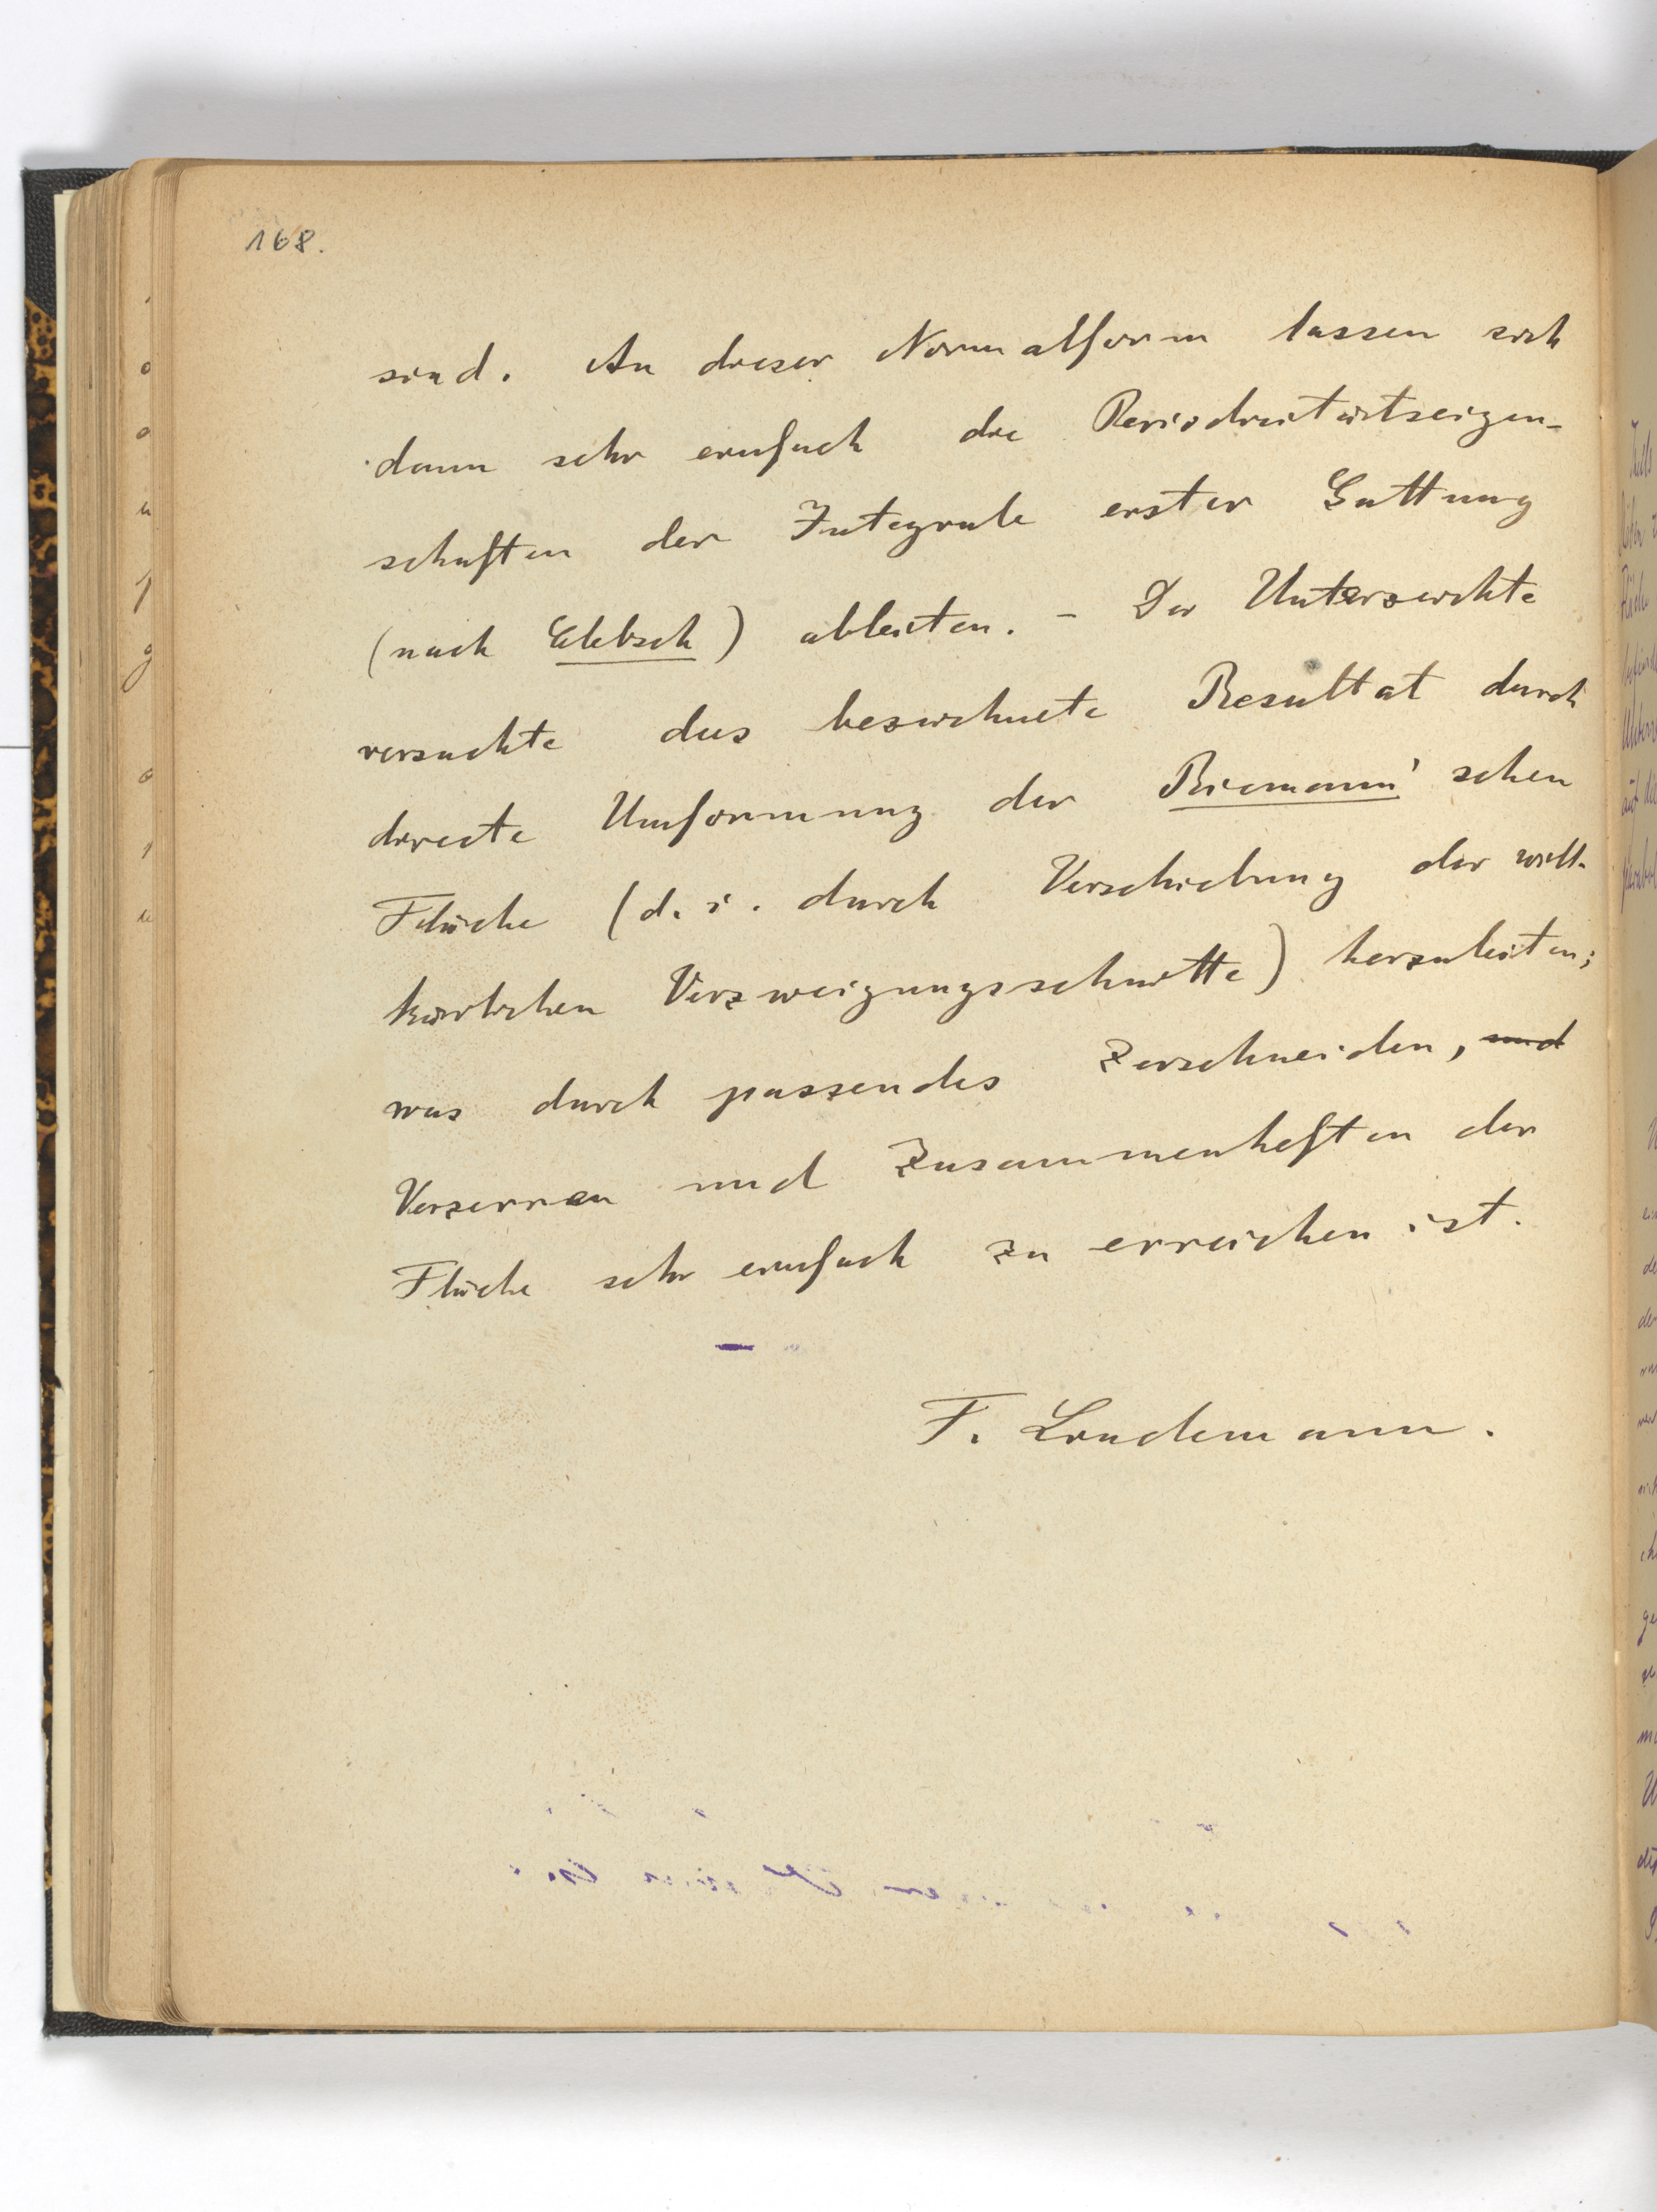 168.
sind. An dieser Normalform lassen sich
dann sehr einfach die Periodicitätseigen-
schaften der Integrale erster Gattung
(nach Clebsch) ableiten. - Der Unterzeichte
versuchte das bezeichnete Resultat durch
directe Umformung der Riemann'schen
Fläche (d. i. durch Verschiebung der will-
kürlichen Verzweigungsschnitte) herzuleiten;
was durch passendes Zerschneiden, und
Verzerren und Zusammenheften der
Fläche sehr einfach zu erreichen ist.
F. Lindemann.